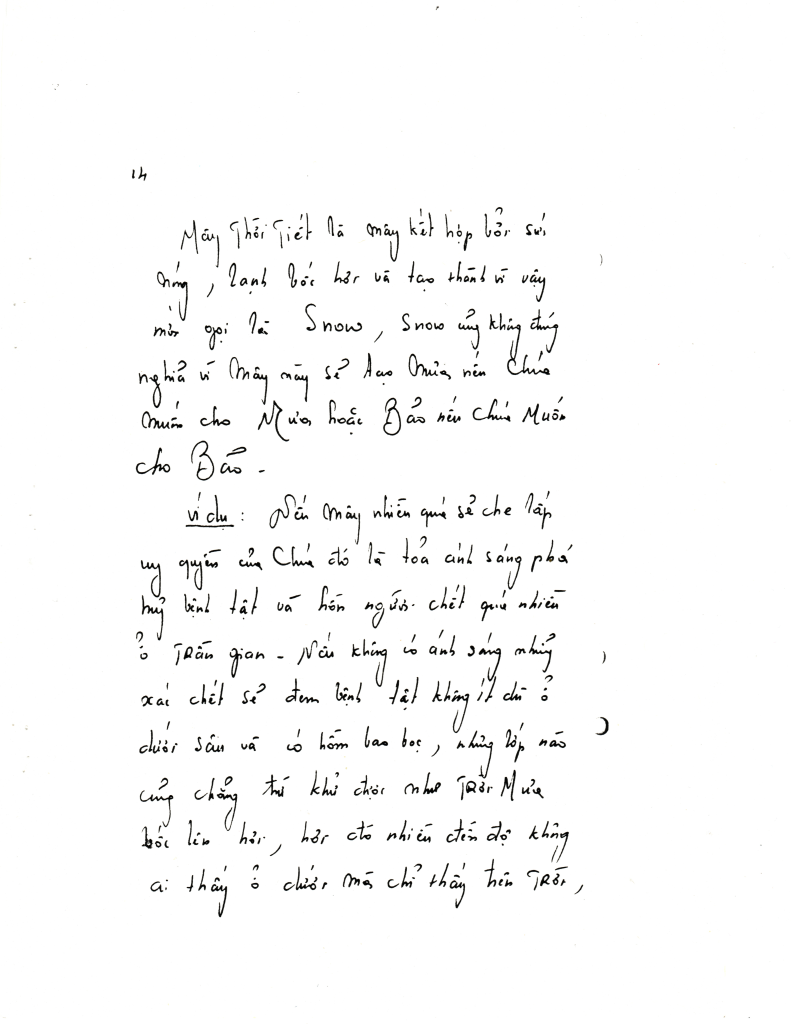 14
Mây Thời Tiết là mây kết hợp bởi sức
nóng, lạnh bốc hơi và tạo thành vì vậy
mới gọi là Snow, Snow cũng không đúng
nghĩa vì Mây này sẽ tạo mưa nếu Chúa
muốn cho Mưa hoặc Bảo nếu Chúa Muốn
cho Bảo -
ví dụ : Nếu Mây nhiều quá sẽ che lấp
uy quyền của Chúa đó là tỏa ánh sáng phá
hủy bệnh tật và hồn người chết quá nhiều
ở TRẦN gian - Nếu không có ánh sáng những
xác chết sẽ đem bệnh tật không ít dù ở
dưới sâu và có hòm bao bọc, những lớp nào
cũng chẳng trừ khử được như TRỜi Mưa
bốc lên hơi, hơi đó nhiều đến độ không
ai thấy ở dưới mà chỉ thấy trên TRời,